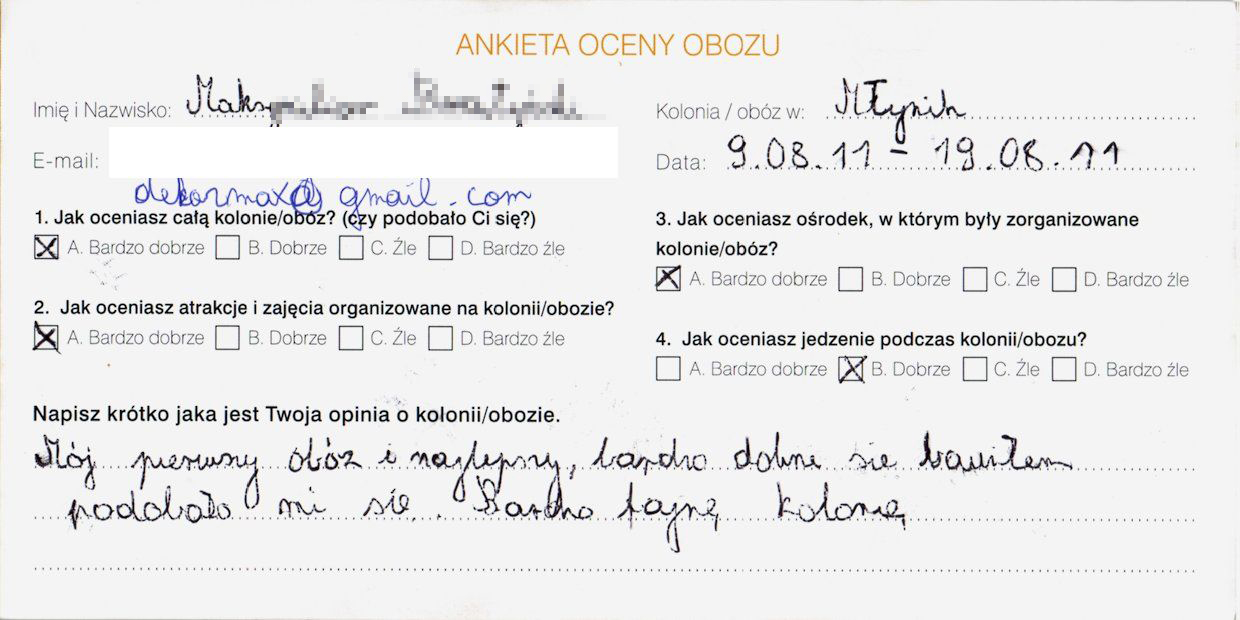 ANKIETA OCENY OBOZU
Imię i Nazwisko:
Kolonia / obóz w: Młynik
E-mail:
Data: 9.08.11 - 19.08.11
dekormax@gmail.com
1. Jak oceniasz całą kolonie/obóz? (czy podobało Ci się?)
A. Bardzo dobrze B. Dobrze C. Źle D. Bardzo źle
2. Jak oceniasz atrakcje i zajęcia organizowane na kolonii/obozie?
A. Bardzo dobrze B. Dobrze C. Źle D. Bardzo źle
3. Jak oceniasz ośrodek, w którym były zorganizowane
kolonie/obóz?
A. Bardzo dobrze B. Dobrze C. Źle D. Bardzo źle
4. Jak oceniasz jedzenie podczas kolonii/obozu?
A. Bardzo dobrze B. Dobrze C. Źle D. Bardzo źle
Napisz krótko jaka jest Twoja opinia o kolonii/obozie.
Mój pierwszy obóz i najlepszy, bardzo dobrze sie bawiłem
podobało mi się. Bardzo fajnę kolonię